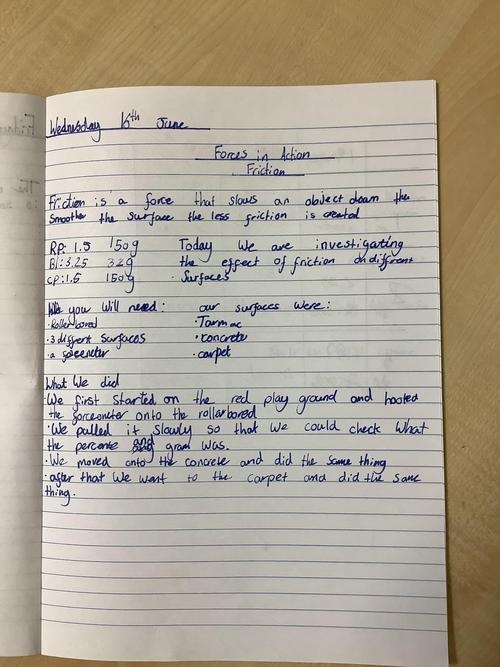 Wednesday 16th June
Forces in Action
Friction
Friction is a force that slows an object down the
Smoother the surface the less friction is created
RP: 1.5 150g Today We are investigating
Bl: 3.25 32g the effect of friction on different
CP: 1.5 150g Surfaces
you will need: our surfaces were:
·Roller bored ·Tarmac
·3 different surfaces ·concrete
·a forcemeter ·carpet
What We did
·We first started on the red play ground and hooted
the forcemeter onto the rollarbored
·We pulled it slowly so that We could check What
the percante and gram was.
·We moved onto the concrete and did the same thing
·after that We want to the carpet and did the same
thing.